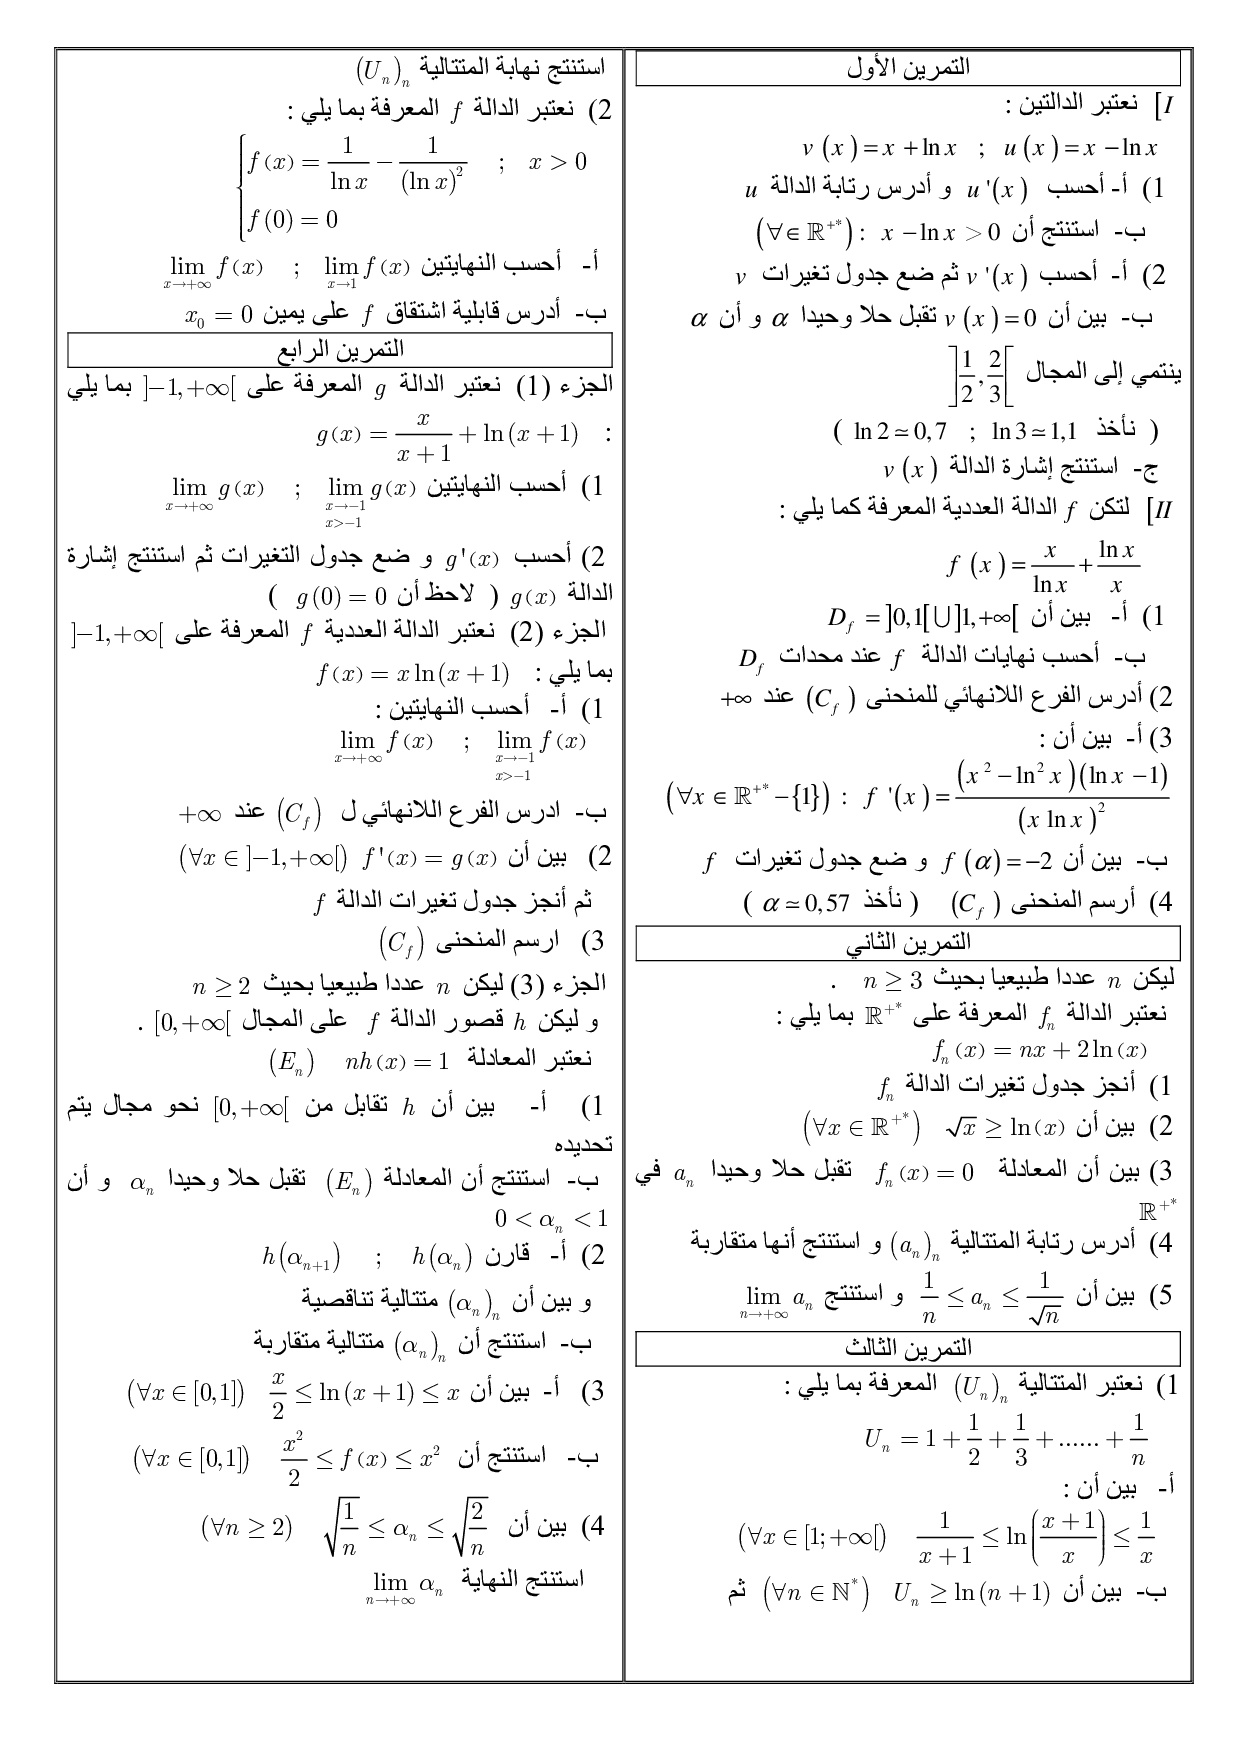 التمرين الأول
I] نعتبر الدالتين :
v(x) = x + ln x ; u(x) = x − ln x
1) أ- أحسب u'(x) و أدرس رتابة الدالة u
ب- استنتج أن (∀∈ ℝ⁺*) : x − ln x > 0
2) أ- أحسب v'(x) ثم ضع جدول تغيرات v
ب- بين أن v(x) = 0 تقبل حلا وحيدا α و أن α
ينتمي إلى المجال ]1/2, 2/3[
( نأخذ ln 2 ≃ 0,7 ; ln 3 ≃ 1,1 )
ج- استنتج إشارة الدالة v(x)
II] لتكن f الدالة العددية المعرفة كما يلي :
f(x) = x/ln x + ln x/x
1) أ- بين أن D_f = ]0,1[ ∪ ]1,+∞[
ب- أحسب نهايات الدالة f عند محدات D_f
2) أدرس الفرع اللانهائي للمنحنى (C_f) عند +∞
3) أ- بين أن :
(∀x ∈ ℝ⁺* − {1}) : f'(x) = (x² − ln² x)(ln x − 1)/(x ln x)²
ب- بين أن f(α) = −2 و ضع جدول تغيرات f
4) أرسم المنحنى (C_f) ( نأخذ α ≃ 0,57 )
التمرين الثاني
ليكن n عددا طبيعيا بحيث n ≥ 3 .
نعتبر الدالة f_n المعرفة على ℝ⁺* بما يلي :
f_n(x) = nx + 2 ln(x)
1) أنجز جدول تغيرات الدالة f_n
2) بين أن √x ≥ ln(x) (∀x ∈ ℝ⁺*)
3) بين أن المعادلة f_n(x) = 0 تقبل حلا وحيدا a_n في
ℝ⁺*
4) أدرس رتابة المتتالية (a_n)_n و استنتج أنها متقاربة
5) بين أن 1/n ≤ a_n ≤ 1/√n و استنتج lim_{n→+∞} a_n
التمرين الثالث
1) نعتبر المتتالية (U_n)_n المعرفة بما يلي :
U_n = 1 + 1/2 + 1/3 + ...... + 1/n
أ- بين أن :
(∀x ∈ [1;+∞[) 1/(x+1) ≤ ln((x+1)/x) ≤ 1/x
ب- بين أن U_n ≥ ln(n+1) (∀n ∈ ℕ*) ثم
استنتج نهابة المتتالية (U_n)_n
2) نعتبر الدالة f المعرفة بما يلي :
{ f(x) = 1/ln x − 1/(ln x)² ; x > 0
f(0) = 0
أ- أحسب النهايتين lim_{x→1} f(x) ; lim_{x→+∞} f(x)
ب- أدرس قابلية اشتقاق f على يمين x₀ = 0
التمرين الرابع
الجزء (1) نعتبر الدالة g المعرفة على ]−1,+∞[ بما يلي
: g(x) = x/(x+1) + ln(x+1)
1) أحسب النهايتين lim_{x→−1, x>−1} g(x) ; lim_{x→+∞} g(x)
2) أحسب g'(x) و ضع جدول التغيرات ثم استنتج إشارة
الدالة g(x) ( لاحظ أن g(0) = 0 )
الجزء (2) نعتبر الدالة العددية f المعرفة على ]−1,+∞[
بما يلي : f(x) = x ln(x+1)
1) أ- أحسب النهايتين :
lim_{x→−1, x>−1} f(x) ; lim_{x→+∞} f(x)
ب- ادرس الفرع اللانهائي ل (C_f) عند +∞
2) بين أن f'(x) = g(x) (∀x ∈ ]−1,+∞[)
ثم أنجز جدول تغيرات الدالة f
3) ارسم المنحنى (C_f)
الجزء (3) ليكن n عددا طبيعيا بحيث n ≥ 2
و ليكن h قصور الدالة f على المجال [0,+∞[ .
نعتبر المعادلة (E_n) nh(x) = 1
1) أ- بين أن h تقابل من [0,+∞[ نحو مجال يتم
تحديده
ب- استنتج أن المعادلة (E_n) تقبل حلا وحيدا α_n و أن
0 < α_n < 1
2) أ- قارن h(α_n) ; h(α_{n+1})
و بين أن (α_n)_n متتالية تناقصية
ب- استنتج أن (α_n)_n متتالية متقاربة
3) أ- بين أن x/2 ≤ ln(x+1) ≤ x (∀x ∈ [0,1])
ب- استنتج أن x²/2 ≤ f(x) ≤ x² (∀x ∈ [0,1])
4) بين أن √(1/n) ≤ α_n ≤ √(2/n) (∀n ≥ 2)
استنتج النهاية lim_{n→+∞} α_n